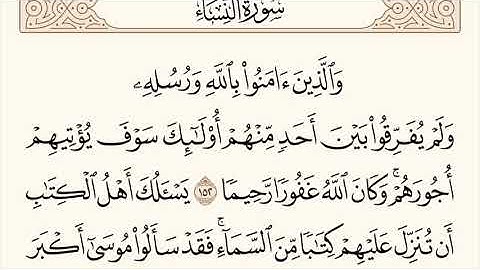 سُورَةُ النِّسَاءِ
وَٱلَّذِينَ ءَامَنُوا۟ بِٱللَّهِ وَرُسُلِهِۦ
وَلَمْ يُفَرِّقُوا۟ بَيْنَ أَحَدٍ مِّنْهُمْ أُو۟لَٰٓئِكَ سَوْفَ يُؤْتِيهِمْ
أُجُورَهُمْ ۚ وَكَانَ ٱللَّهُ غَفُورًا رَّحِيمًا ١٥٢ يَسْـَٔلُكَ أَهْلُ ٱلْكِتَٰبِ
أَن تُنَزِّلَ عَلَيْهِمْ كِتَٰبًا مِّنَ ٱلسَّمَآءِ ۚ فَقَدْ سَأَلُوا۟ مُوسَىٰٓ أَكْبَرَ